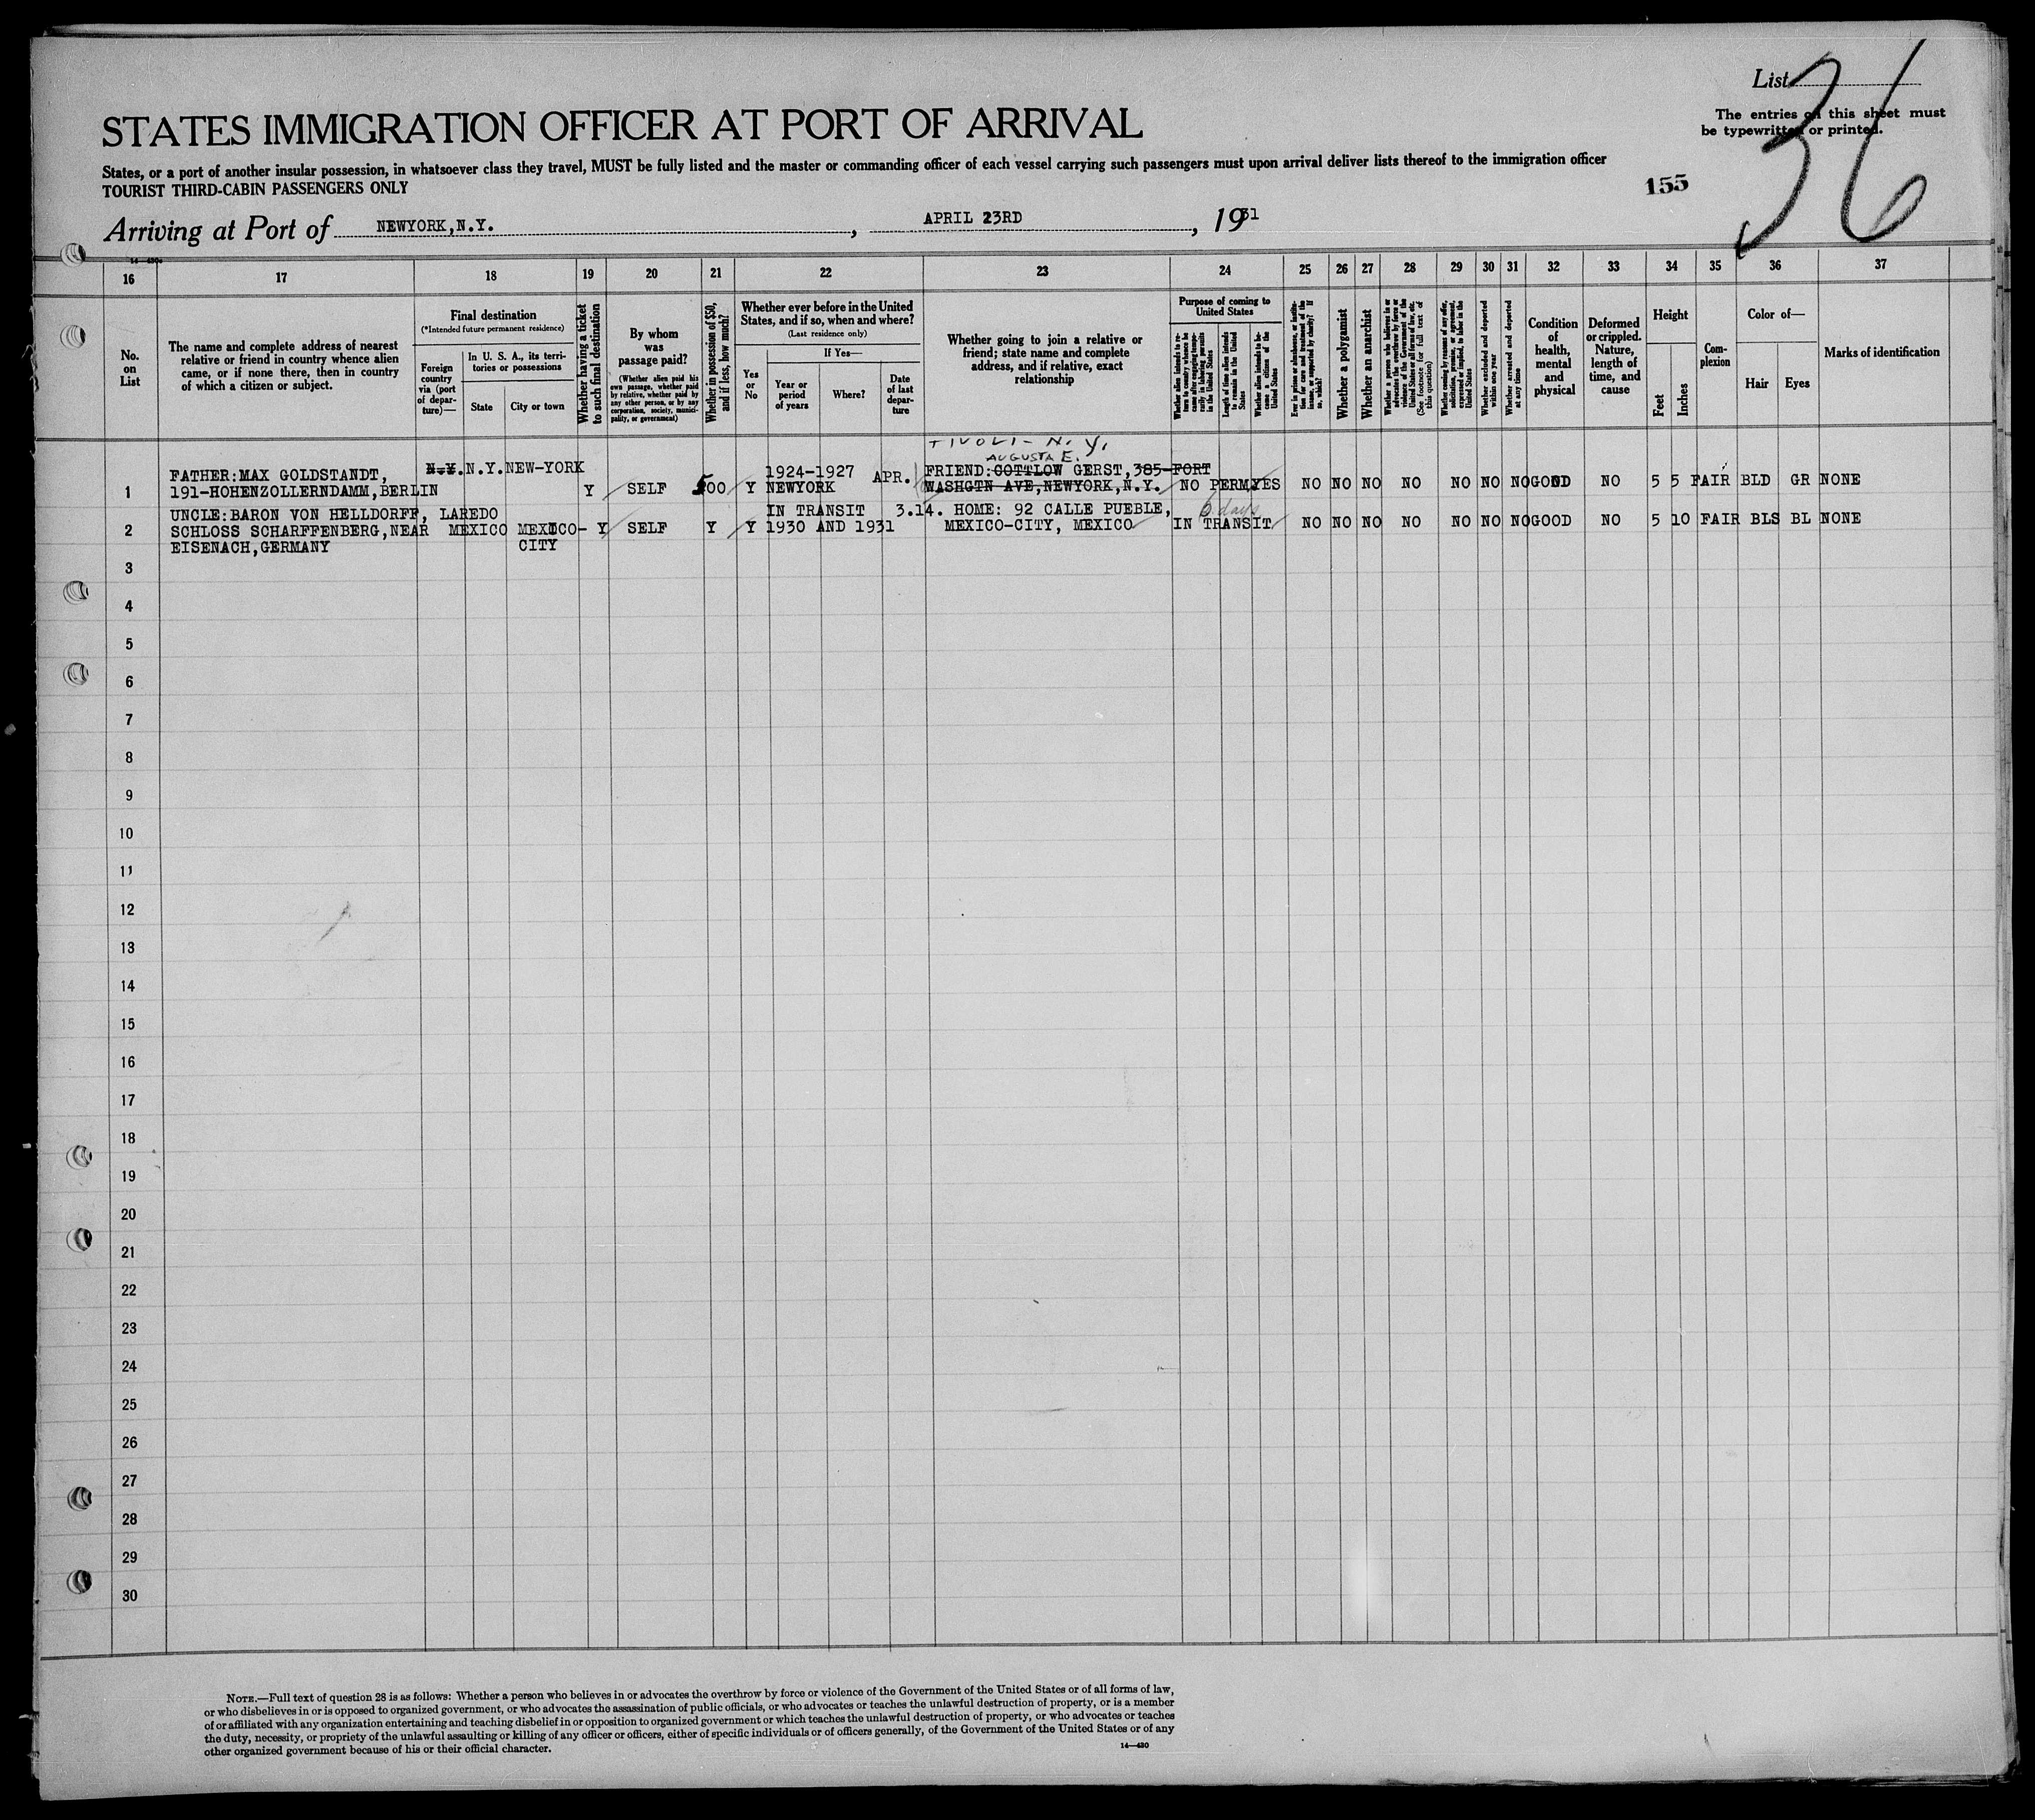 List 36
The entries on this sheet must
be typewritten or printed.
STATES IMMIGRATION OFFICER AT PORT OF ARRIVAL
States, or a port of another insular possession, in whatsoever class they travel, MUST be fully listed and the master or commanding officer of each vessel carrying such passengers must upon arrival deliver lists thereof to the immigration officer
TOURIST THIRD-CABIN PASSENGERS ONLY
155
Arriving at Port of NEWYORK,N.Y. , APRIL 23RD , 1931
16 17 18 19 20 21 22 23 24 25 26 27 28 29 30 31 32 33 34 35 36 37
No.
on
List
The name and complete address of nearest
relative or friend in country whence alien
came, or if none there, then in country
of which a citizen or subject.
Final destination
(*Intended future permanent residence)
Foreign
country
via (port
of depar-
ture)—
In U. S. A., its terri-
tories or possessions
State
City or town
Whether having a ticket
to such final destination
By whom
was
passage paid?
(Whether alien paid his
own passage, whether paid
by relative, whether paid by
any other person, or by any
corporation, society, munici-
pality, or government)
Whether in possession of $50,
and if less, how much?
Whether ever before in the United
States, and if so, when and where?
(Last residence only)
Yes
or
No
If Yes—
Year or
period
of years
Where?
Date
of last
depar-
ture
Whether going to join a relative or
friend; state name and complete
address, and if relative, exact
relationship
Purpose of coming to
United States
Whether alien intends to re-
turn to country whence he
came after engaging tempo-
rarily in laboring pursuits
in the United States
Length of time alien intends
to remain in the United
States
Whether alien intends to be-
come a citizen of the
United States
Ever in prison or almshouse, or institu-
tion for care and treatment of the
insane, or supported by charity? If
so, which?
Whether a polygamist
Whether an anarchist
Whether a person who believes in or
advocates the overthrow by force or
violence of the Government of the
United States or all forms of law, etc.
(See footnote for full text of
this question)
Whether coming by reason of any offer,
solicitation, promise, or agreement,
expressed or implied, to labor in the
United States
Whether excluded and deported
within one year
Whether arrested and deported
at any time
Condition
of
health,
mental
and
physical
Deformed
or crippled.
Nature,
length of
time, and
cause
Height
Feet
Inches
Com-
plexion
Color of—
Hair
Eyes
Marks of identification
TIVOLI- N.Y.
AUGUSTA E.
FATHER:MAX GOLDSTANDT, N.Y. N.Y. NEW-YORK 1924-1927 APR. FRIEND:GOTTLOW GERST,385-FORT
1 191-HOHENZOLLERNDAMM,BERLIN Y SELF 500 Y NEWYORK WASHGTN AVE,NEWYORK,N.Y. NO PERM YES NO NO NO NO NO NO NO GOOD NO 5 5 FAIR BLD GR NONE
UNCLE:BARON VON HELLDORFF, LAREDO IN TRANSIT 3.14. HOME: 92 CALLE PUEBLE, 6 days
2 SCHLOSS SCHARFFENBERG,NEAR MEXICO MEXICO- Y SELF Y Y 1930 AND 1931 MEXICO-CITY, MEXICO IN TRANSIT NO NO NO NO NO NO NO GOOD NO 5 10 FAIR BLS BL NONE
EISENACH,GERMANY CITY
3
4
5
6
7
8
9
10
11
12
13
14
15
16
17
18
19
20
21
22
23
24
25
26
27
28
29
30
NOTE.—Full text of question 28 is as follows: Whether a person who believes in or advocates the overthrow by force or violence of the Government of the United States or of all forms of law,
or who disbelieves in or is opposed to organized government, or who advocates the assassination of public officials, or who advocates or teaches the unlawful destruction of property, or is a member
of or affiliated with any organization entertaining and teaching disbelief in or opposition to organized government or which teaches the unlawful destruction of property, or who advocates or teaches
the duty, necessity, or propriety of the unlawful assaulting or killing of any officer or officers, either of specific individuals or of officers generally, of the Government of the United States or of any
other organized government because of his or their official character.
14—430